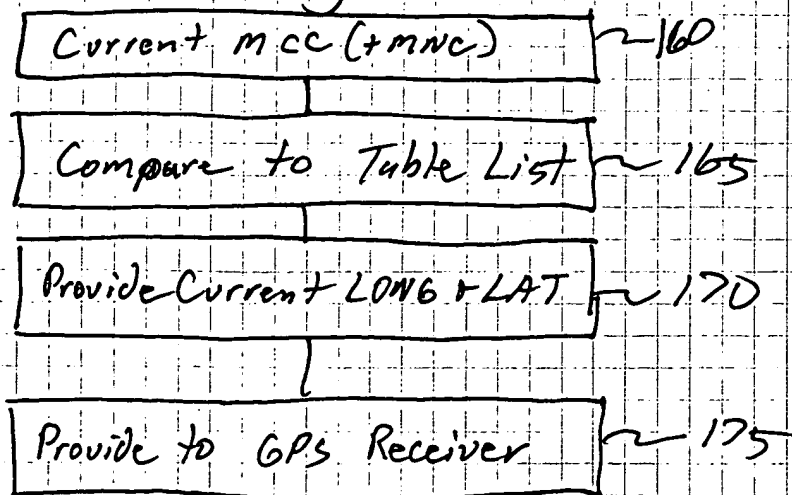 Current MCC (+MNC) 160
Compare to Table List 165
Provide Current LONG + LAT 170
Provide to GPS Receiver 175